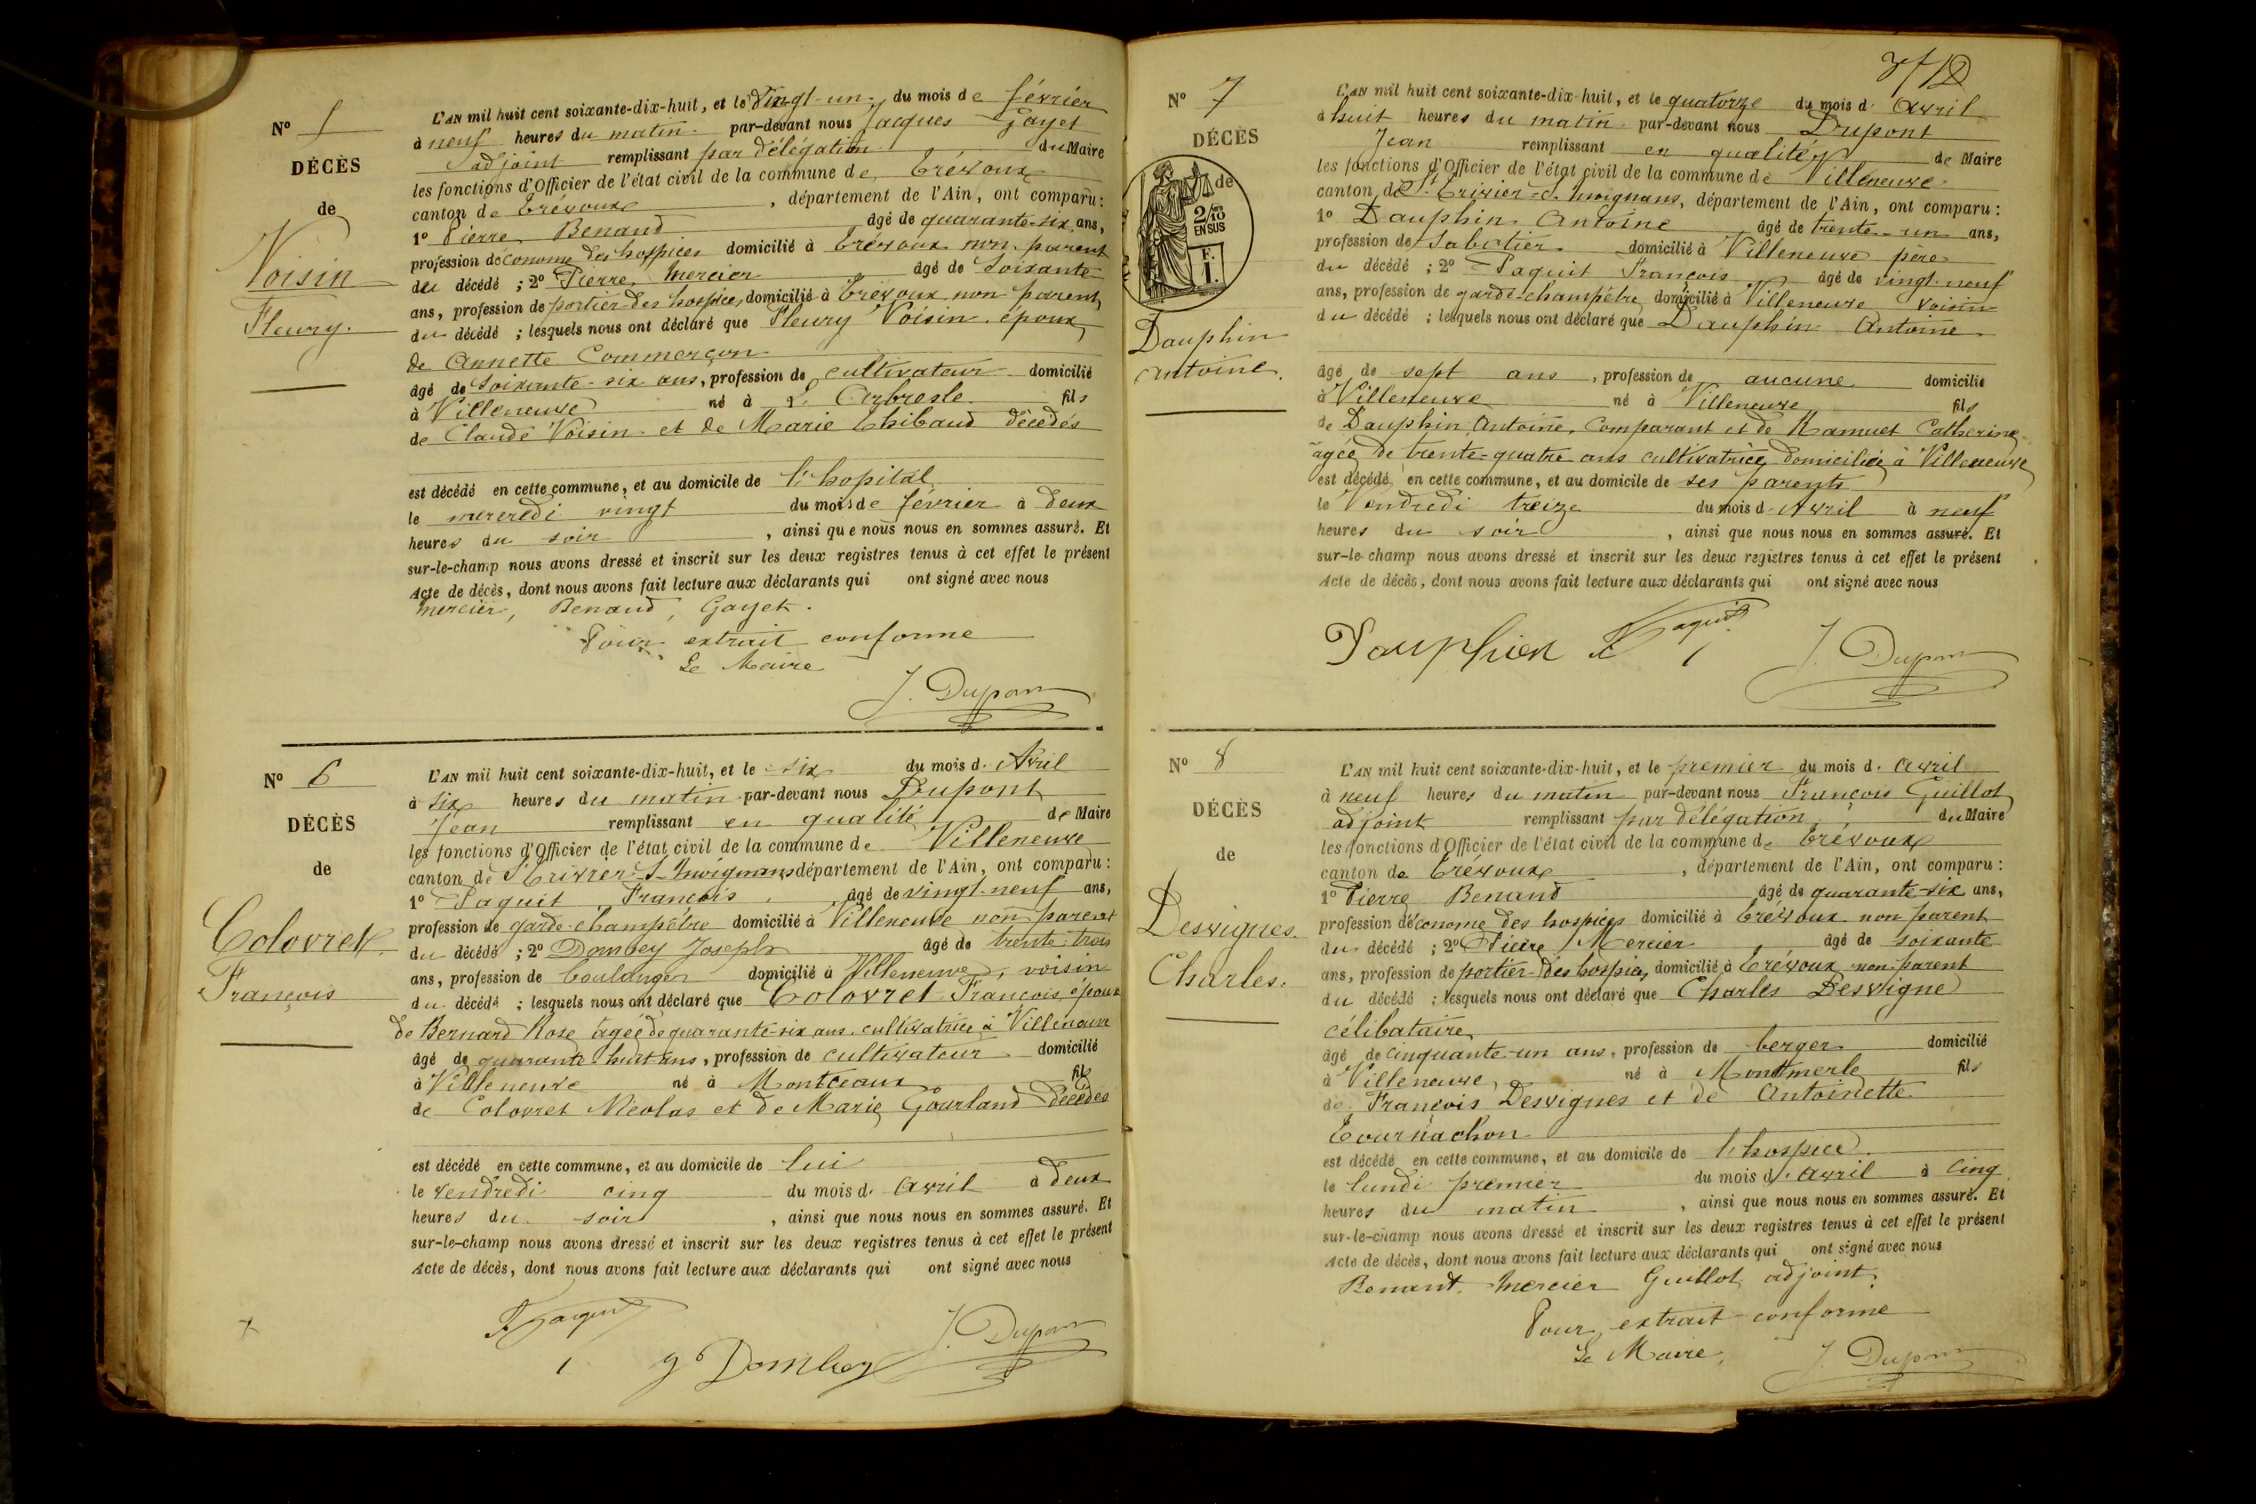 Nº 5
DÉCÈS
de
Voisin
Fleury.
L'AN mil huit cent soixante-dix-huit, et le Vingt-un du mois de février
à neuf heures du matin par-devant nous Jacques Gayet
adjoint remplissant par délégation du Maire
les fonctions d'Officier de l'état civil de la commune de Trévoux
canton de Trévoux, département de l'Ain, ont comparu :
1º Pierre Benand âgé de quarante-six ans,
profession d'économe des hospices domicilié à Trévoux non parent
du décédé ; 2º Pierre Mercier âgé de soixante
ans, profession de portier des hospices, domicilié à Trévoux non parent
du décédé ; lesquels nous ont déclaré que Fleury Voisin époux
de Annette Commerçon
âgé de soixante-six ans, profession de cultivateur domicilié
à Villeneuve né à L'Arbresle fils
de Claude Voisin et de Marie Thibaud décédés
est décédé en cette commune, et au domicile de l'hopital
le mercredi vingt du mois de février à deux
heures du soir, ainsi que nous nous en sommes assuré. Et
sur-le-champ nous avons dressé et inscrit sur les deux registres tenus à cet effet le présent
Acte de décès, dont nous avons fait lecture aux déclarants qui ont signé avec nous
Mercier, Benand, Gayet.
Pour extrait conforme
Le Maire
J. Dupont
Nº 6
DÉCÈS
de
Colovret
François
L'AN mil huit cent soixante-dix-huit, et le six du mois d. Avril
à six heures du matin par-devant nous Dupont
Jean remplissant en qualité de Maire
les fonctions d'Officier de l'état civil de la commune de Villeneuve
canton de St Trivier-S-Moignans département de l'Ain, ont comparu :
1º Paquit François âgé de vingt-neuf ans,
profession de garde-champêtre domicilié à Villeneuve non parent
du décédé ; 2º Dombey Joseph âgé de trente-trois
ans, profession de boulanger domicilié à Villeneuve, voisin
du décédé ; lesquels nous ont déclaré que Colovret François, époux
de Bernard Rose âgée de quarante-six ans cultivatrice à Villeneuve
âgé de quarante-huit ans, profession de cultivateur domicilié
à Villeneuve né à Montceaux fils
de Colovret Nicolas et de Marie Gourland décédés
est décédé en cette commune, et au domicile de lui
le vendredi cinq du mois d. avril à deux
heures du soir, ainsi que nous nous en sommes assuré. Et
sur-le-champ nous avons dressé et inscrit sur les deux registres tenus à cet effet le présent
Acte de décès, dont nous avons fait lecture aux déclarants qui ont signé avec nous
F Paquit
Dombey
J. Dupont
Nº 7
DÉCÈS
de
2/10 EN SUS
F. 1.
Dauphin
Antoine.
L'AN mil huit cent soixante-dix-huit, et le quatorze du mois d. avril
à huit heures du matin par-devant nous Dupont
Jean remplissant en qualité de Maire
les fonctions d'Officier de l'état civil de la commune de Villeneuve
canton de St Trivier-S-Moignans, département de l'Ain, ont comparu :
1º Dauphin Antoine âgé de trente-un ans,
profession de sabotier domicilié à Villeneuve père
du décédé ; 2º Paquit François âgé de vingt-neuf
ans, profession de garde-champêtre domicilié à Villeneuve voisin
du décédé ; lesquels nous ont déclaré que Dauphin Antoine
âgé de sept ans, profession de aucune domicilié
à Villeneuve né à Villeneuve fils
de Dauphin Antoine, comparant et de Ramuet Catherine
âgée de trente-quatre ans cultivatrice domiciliée à Villeneuve
est décédé en cette commune, et au domicile de ses parents
le Vendredi treize du mois d. Avril à neuf
heures du soir, ainsi que nous nous en sommes assuré. Et
sur-le-champ nous avons dressé et inscrit sur les deux registres tenus à cet effet le présent
Acte de décès, dont nous avons fait lecture aux déclarants qui ont signé avec nous
Dauphin F Paquit J. Dupont
Nº 8
DÉCÈS
de
Desvignes.
Charles.
L'AN mil huit cent soixante-dix-huit, et le premier du mois d. avril
à neuf heures du matin par-devant nous François Guillot
adjoint remplissant par délégation du Maire
les fonctions d'Officier de l'état civil de la commune de Trévoux
canton de Trévoux, département de l'Ain, ont comparu :
1º Pierre Benand âgé de quarante-six ans,
profession d'économe des hospices domicilié à Trévoux non parent
du décédé ; 2º Pierre Mercier âgé de soixante
ans, profession de portier des hospices, domicilié à Trévoux non parent
du décédé ; lesquels nous ont déclaré que Charles Desvigne
célibataire
âgé de cinquante-un ans, profession de berger domicilié
à Villeneuve, né à Montmerle fils
de François Desvignes et de Antoinette
Tournachon
est décédé en cette commune, et au domicile de l'hospice
le lundi premier du mois d. avril à cinq
heures du matin, ainsi que nous nous en sommes assuré. Et
sur-le-champ nous avons dressé et inscrit sur les deux registres tenus à cet effet le présent
Acte de décès, dont nous avons fait lecture aux déclarants qui ont signé avec nous
Benand. Mercier Guillot adjoint.
Pour extrait conforme
Le Maire,
J. Dupont